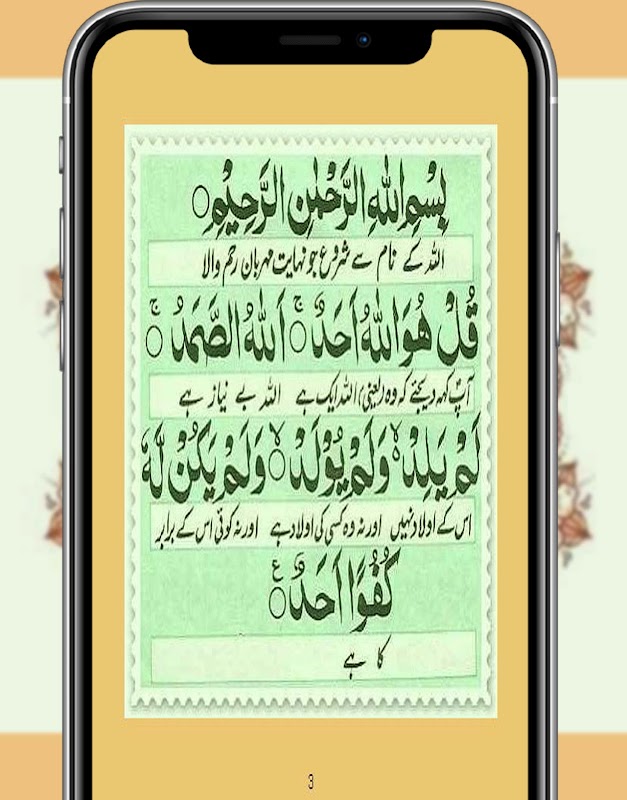 بِسْمِ اللهِ الرَّحْمٰنِ الرَّحِيْمِ ○
اللہ کے نام سے شروع جو نہایت مہربان رحم والا
قُلْ هُوَ اللهُ اَحَدٌ ۚ○ اَللهُ الصَّمَدُ ۚ○
آپؐ کہہ دیجئے کہ وہ (یعنی) اللہ ایک ہے اللہ بے نیاز ہے
لَمْ يَلِدْ ۙ وَلَمْ يُوْلَدْ ۙ○ وَلَمْ يَكُنْ لَّهٗ
اس کے اولاد نہیں اور نہ وہ کسی کی اولاد ہے اور نہ کوئی اس کے برابر
كُفُوًا اَحَدٌ ○ ع
کا ہے
3